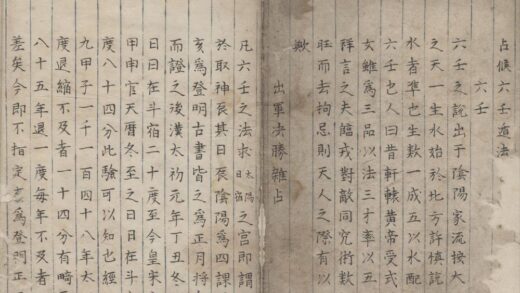 占候六壬遁法
六壬
六壬之説出于陰陽家流按大
之天一生水始於北方許慎説
水者準也生數一成五以水配
六壬也人曰昔軒轅黃帝受式
女雖為三品以法三才率以五
詳言之夫臨戎對敵同究術數
旺而去拘忌則天人之際有以
歟
出軍决勝雜占
凡六壬之法求太陽日宿之宮即謂
於取神辰其日辰陰陽為四課
亥為登明古書皆之為正月將
而證之後漢太初元年丁丑冬
日日在斗宿二十度至今皇宋
甲申官天曆冬至之日日在斗
度八十四分此驗可以知也經
九甲子一千一百四十八年太
度退縮不及者一十四分有畸
八十五年退一度每年不及者
差矣今即不指定亥為登明正